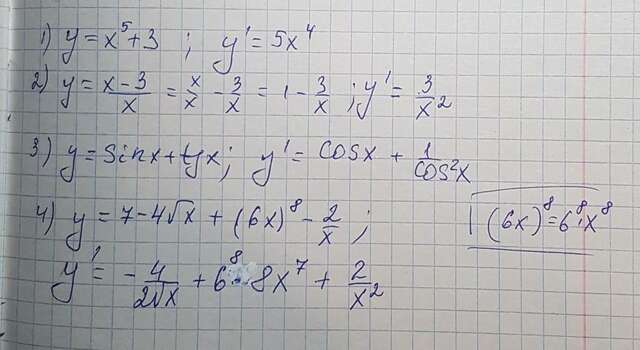 1) y = x⁵ + 3 ; y' = 5x⁴
2) y = (x − 3)/x = x/x − 3/x = 1 − 3/x ; y' = 3/x²
3) y = sin x + tg x ; y' = cos x + 1/cos²x
4) y = 7 − 4√x + (6x)⁸ − 2/x ; | (6x)⁸ = 6⁸·x⁸
y' = − 4/(2√x) + 6⁸·8x⁷ + 2/x²